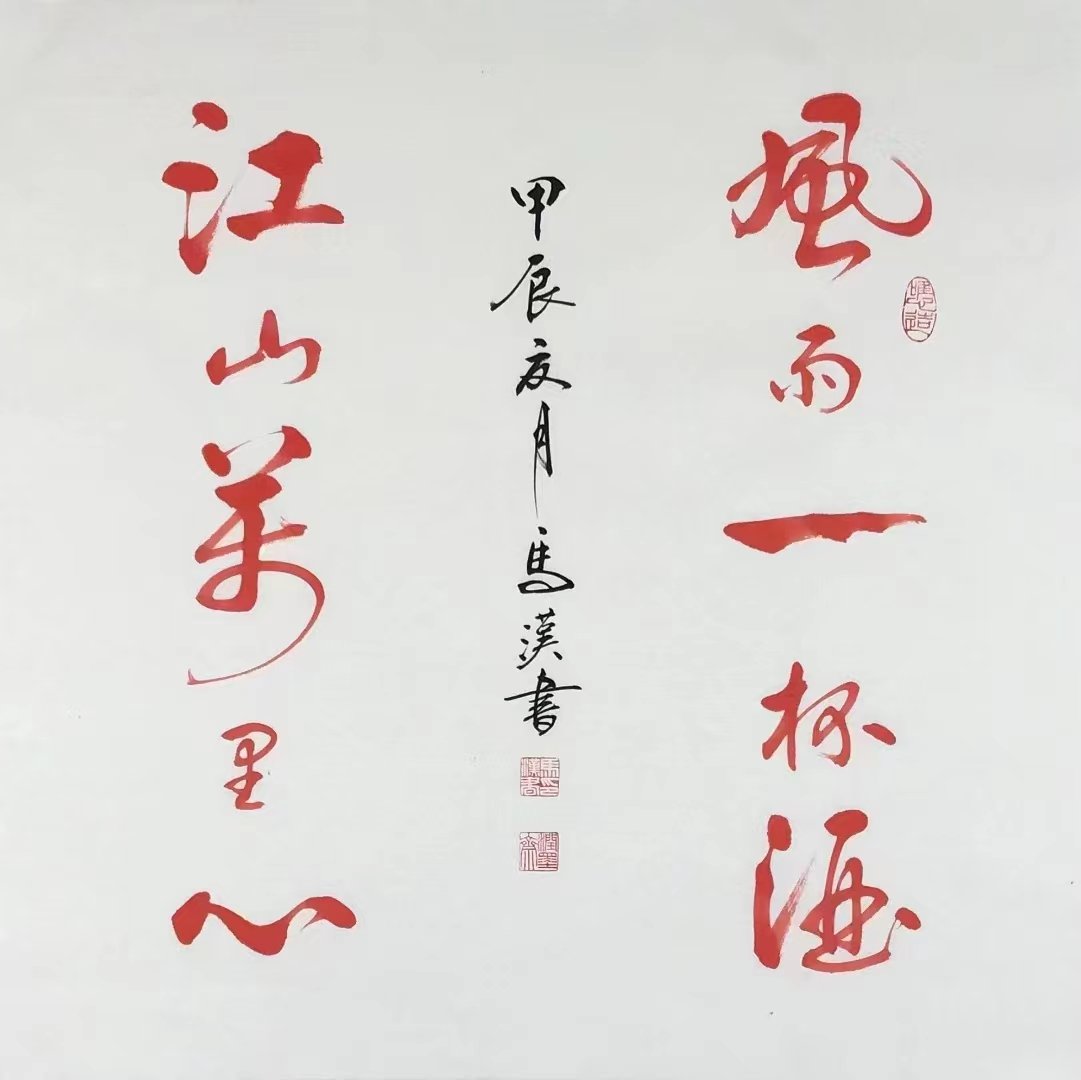 風雨一杯酒
甲辰夏月馬漢書
江山萬里心